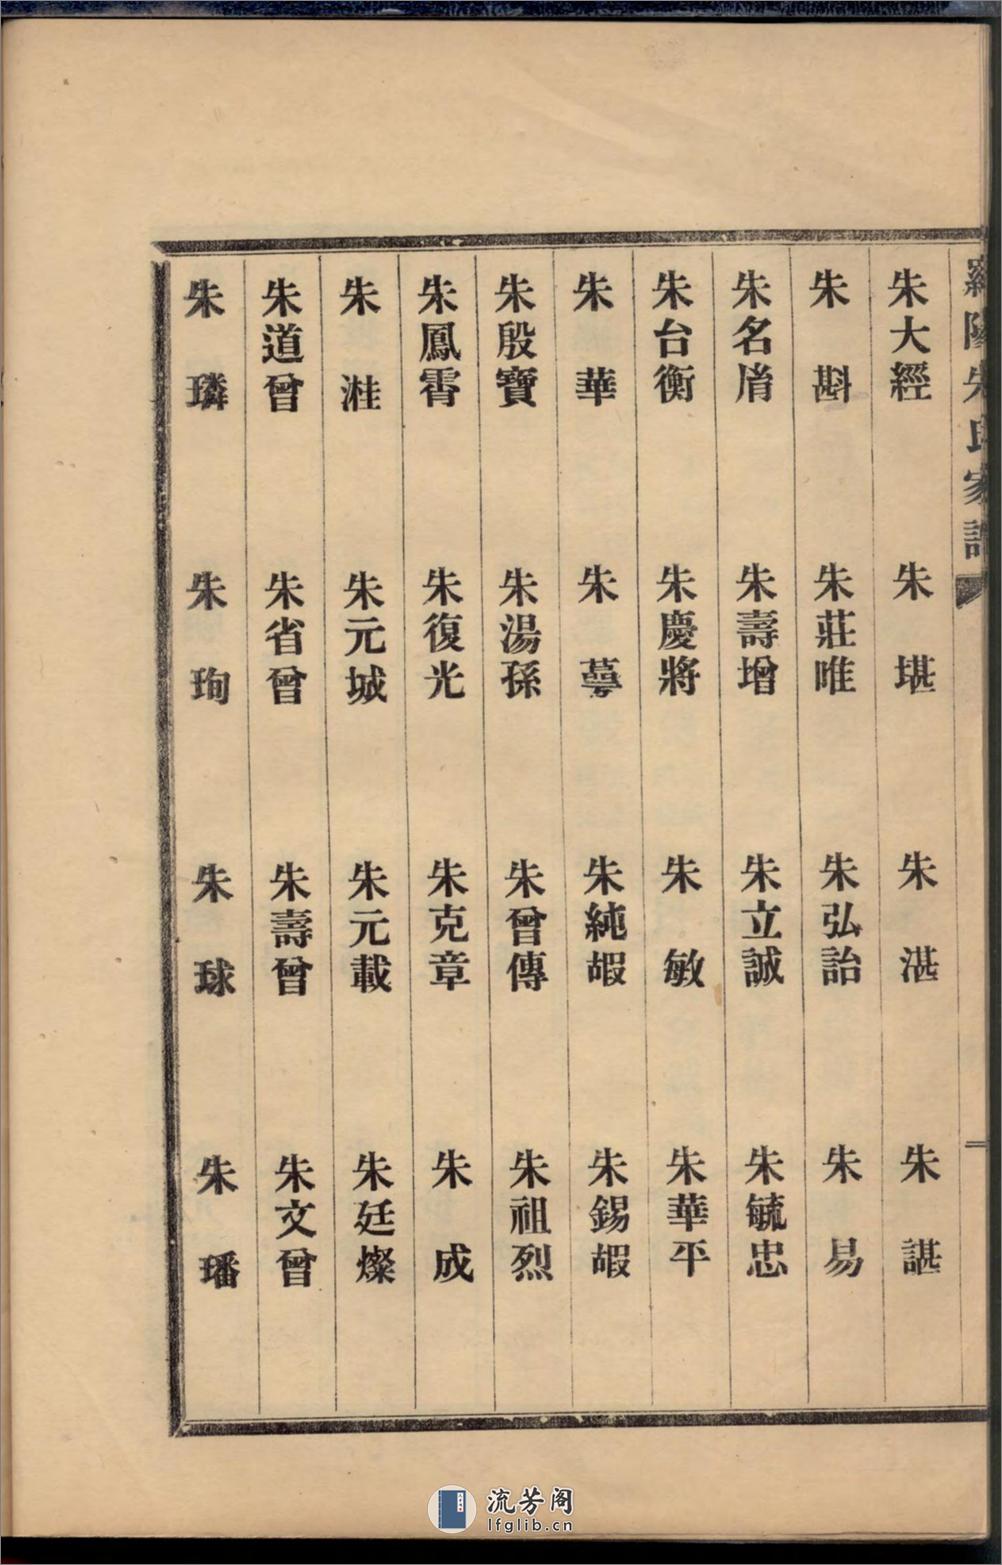 朱大經 朱堪 朱湛 朱諶
朱斟 朱莊唯 朱弘詒 朱易
朱名㡳 朱壽增 朱立誠 朱毓忠
朱台衡 朱慶將 朱敏 朱華平
朱華 朱蕚 朱純嘏 朱錫嘏
朱殷寶 朱湯孫 朱曾傳 朱祖烈
朱鳳霄 朱復光 朱克章 朱成
朱溎 朱元城 朱元載 朱廷燦
朱道曾 朱省曾 朱壽曾 朱文曾
朱璘 朱珣 朱球 朱璠
朱氏家譜
一
流芳阁
lfglib.cn